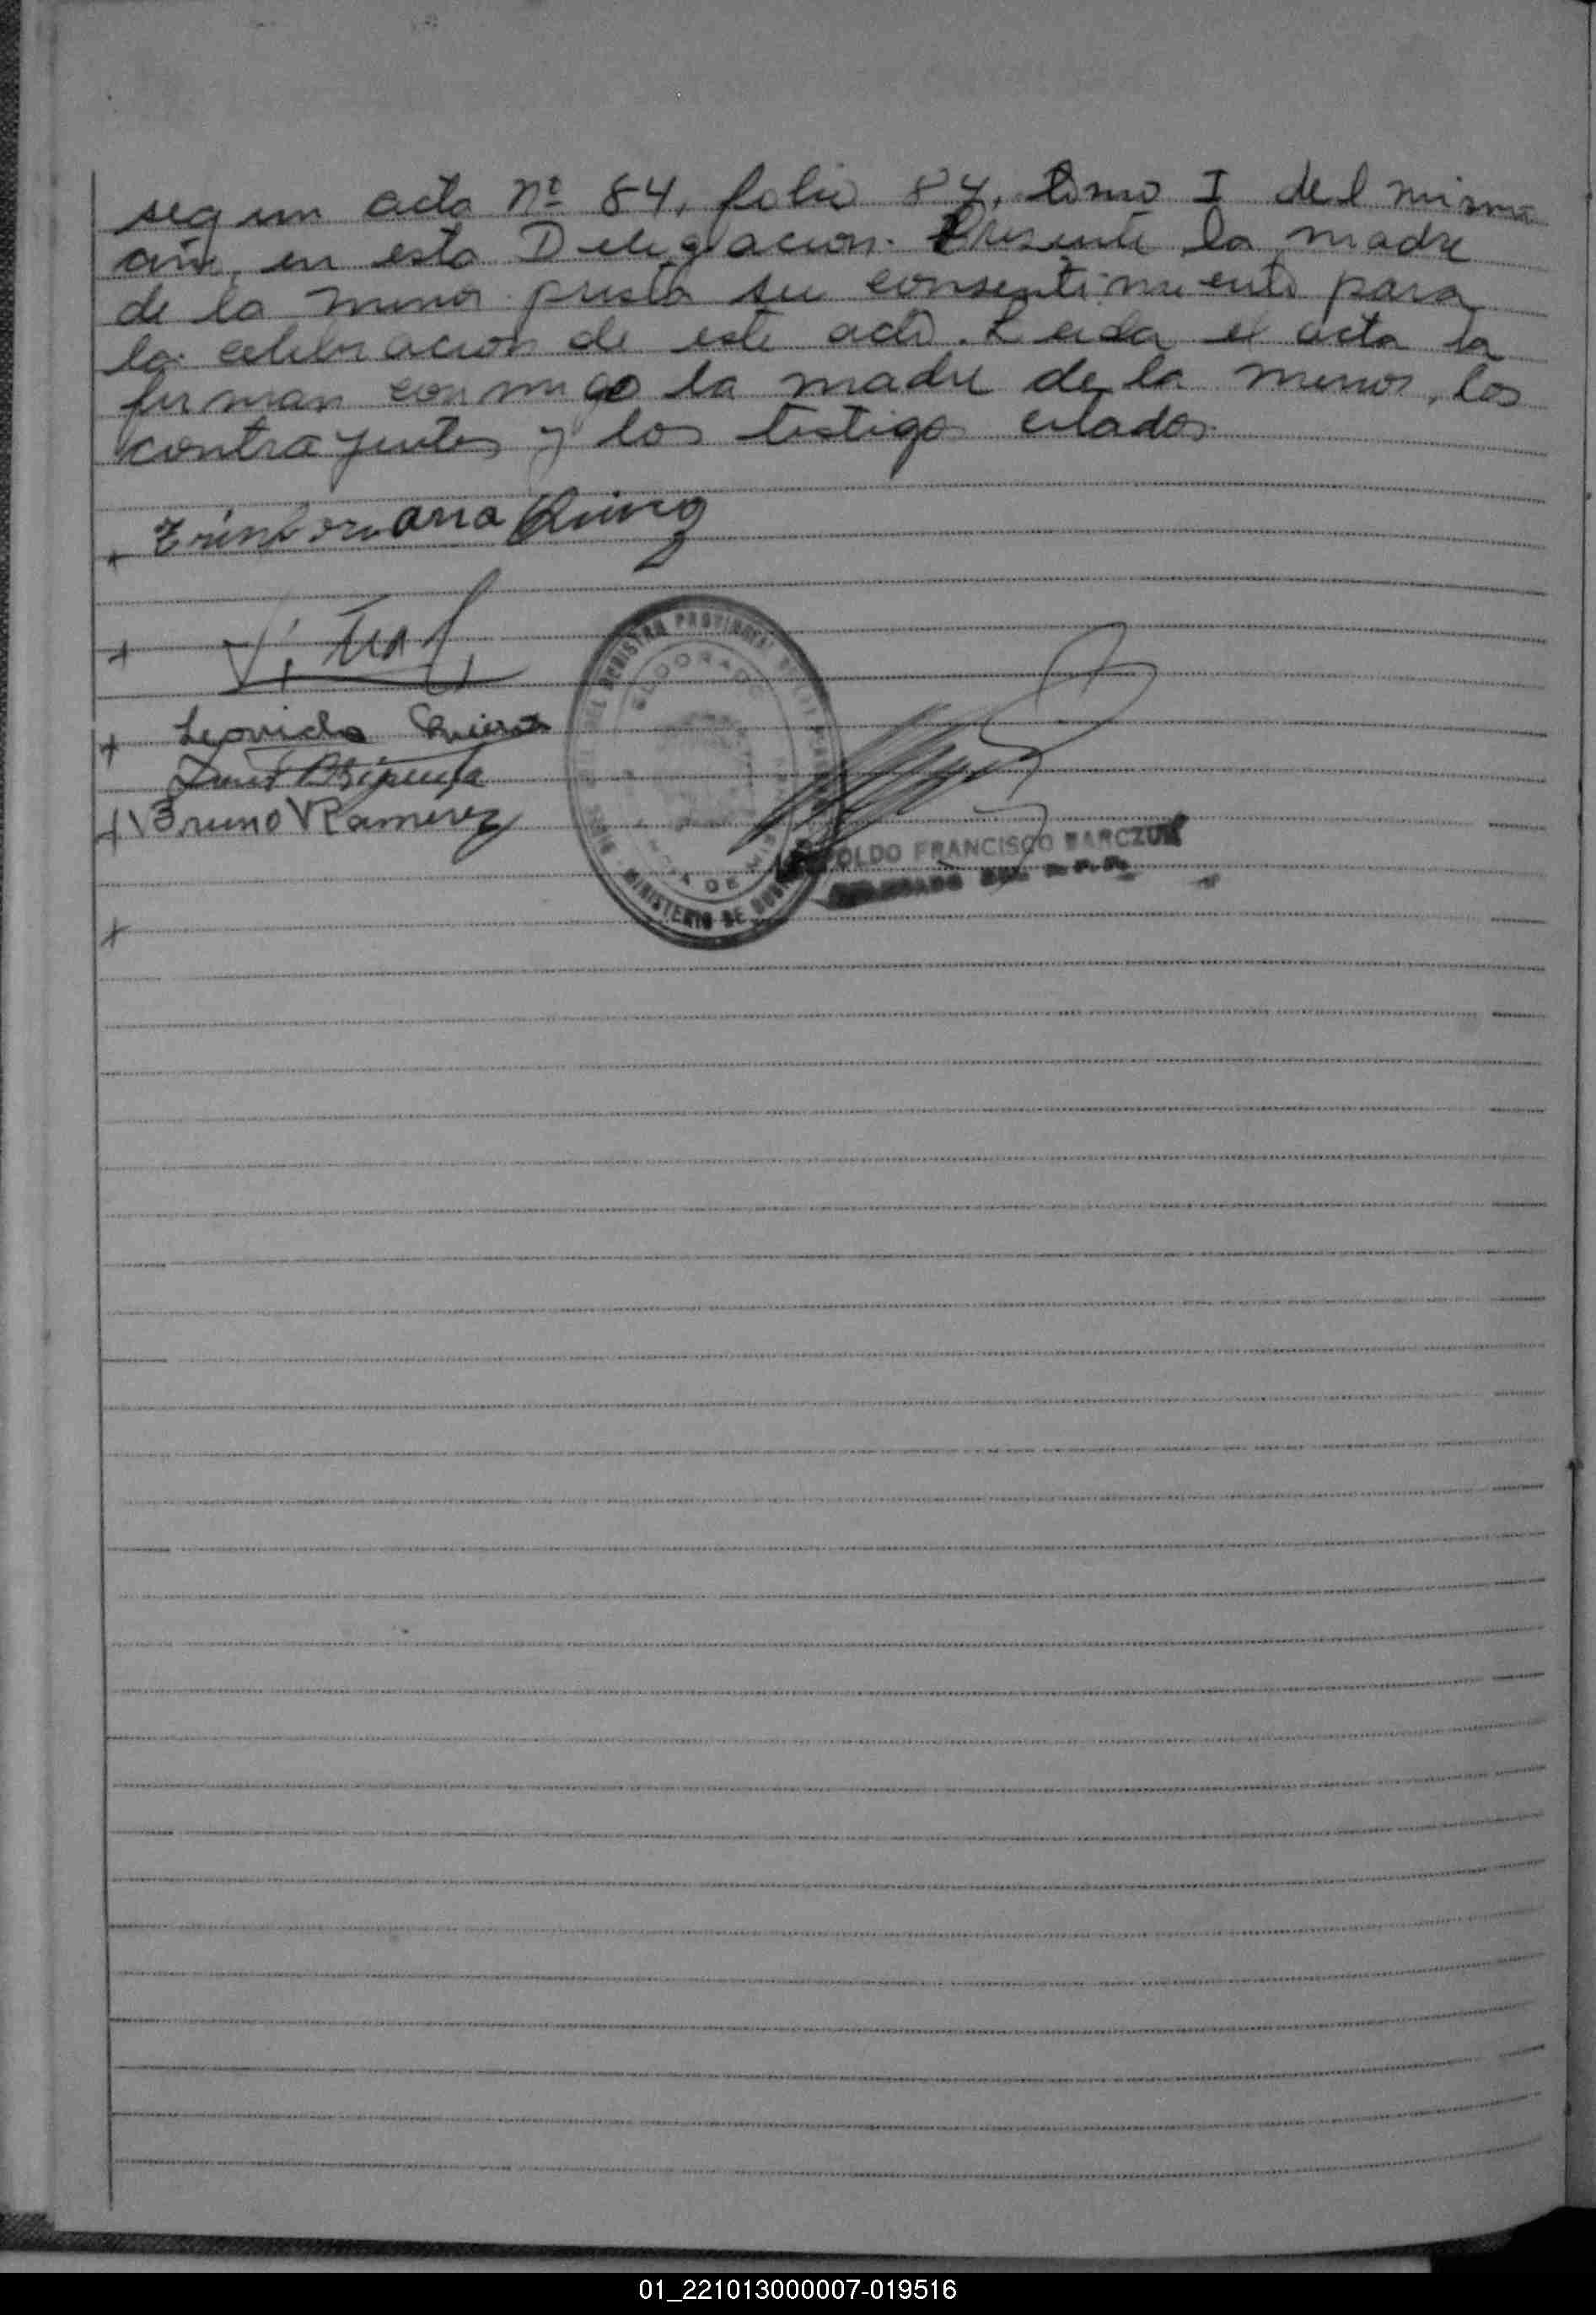 segun acta nº 84, folio 84, tomo I del mismo
año, en esta Delegacion. Presente la madre
de la menor presta su consentimiento para
la celebracion de este acto. Leida el acta la
firman conmigo la madre de la menor, los
contrayentes y los testigos citados.
Leonida
Bruno Ramirez
DEL REGISTRO PROVINCIAL DE LAS
ELDORADO
DE MIS
MINISTERIO DE GOB
OLDO FRANCISCO MARCZUK
01_221013000007-019516